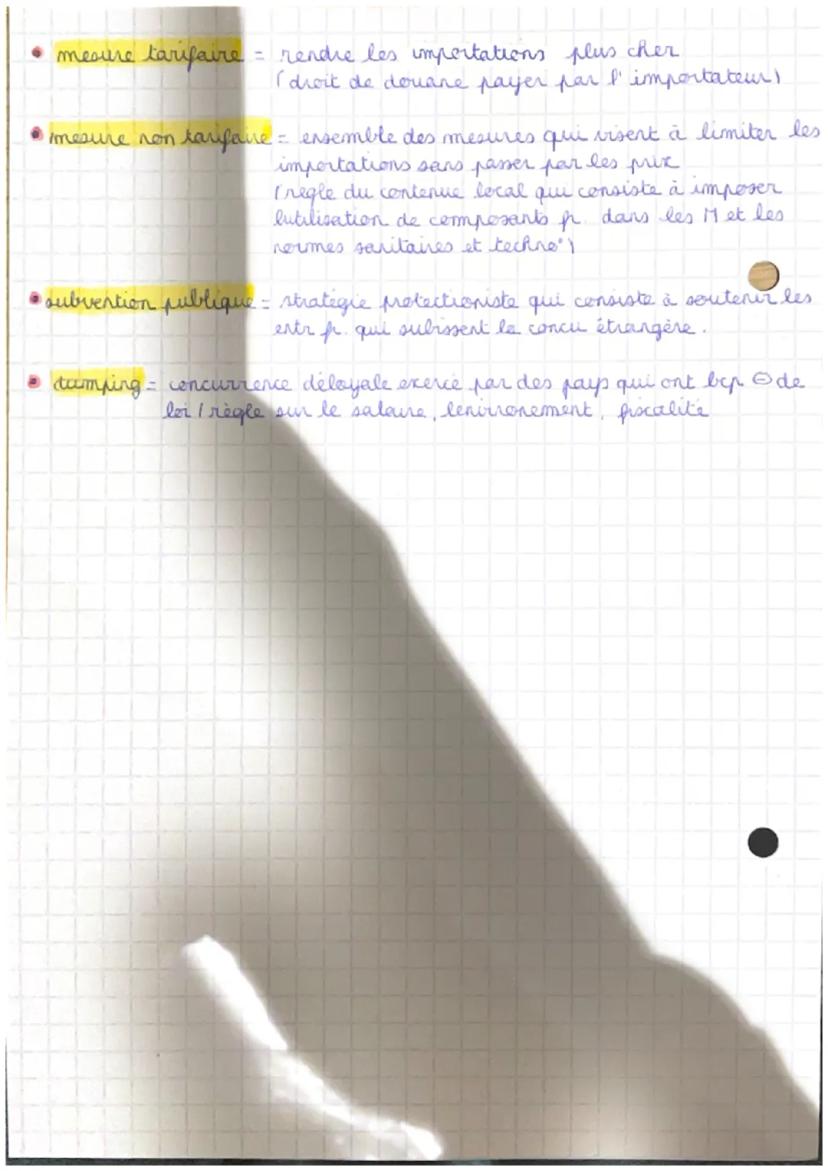 • mesure tarifaire = rendre les importations plus cher
(droit de douane payer par l'importateur)
• mesure non tarifaire = ensemble des mesures qui visent à limiter les
importations sans passer par les prix
(règle du contenue local qui consiste à imposer
lutilisation de composants fr. dans les M et les
normes sanitaires et techno°)
• subvention publique = stratégie protectioniste qui consiste à soutenir les
entr fr. qui subissent la concu étrangère.
• dumping = concurrence déloyale exercé par des pays qui ont bcp ⊖ de
loi / règle sur le salaire, lenvironement, fiscalité